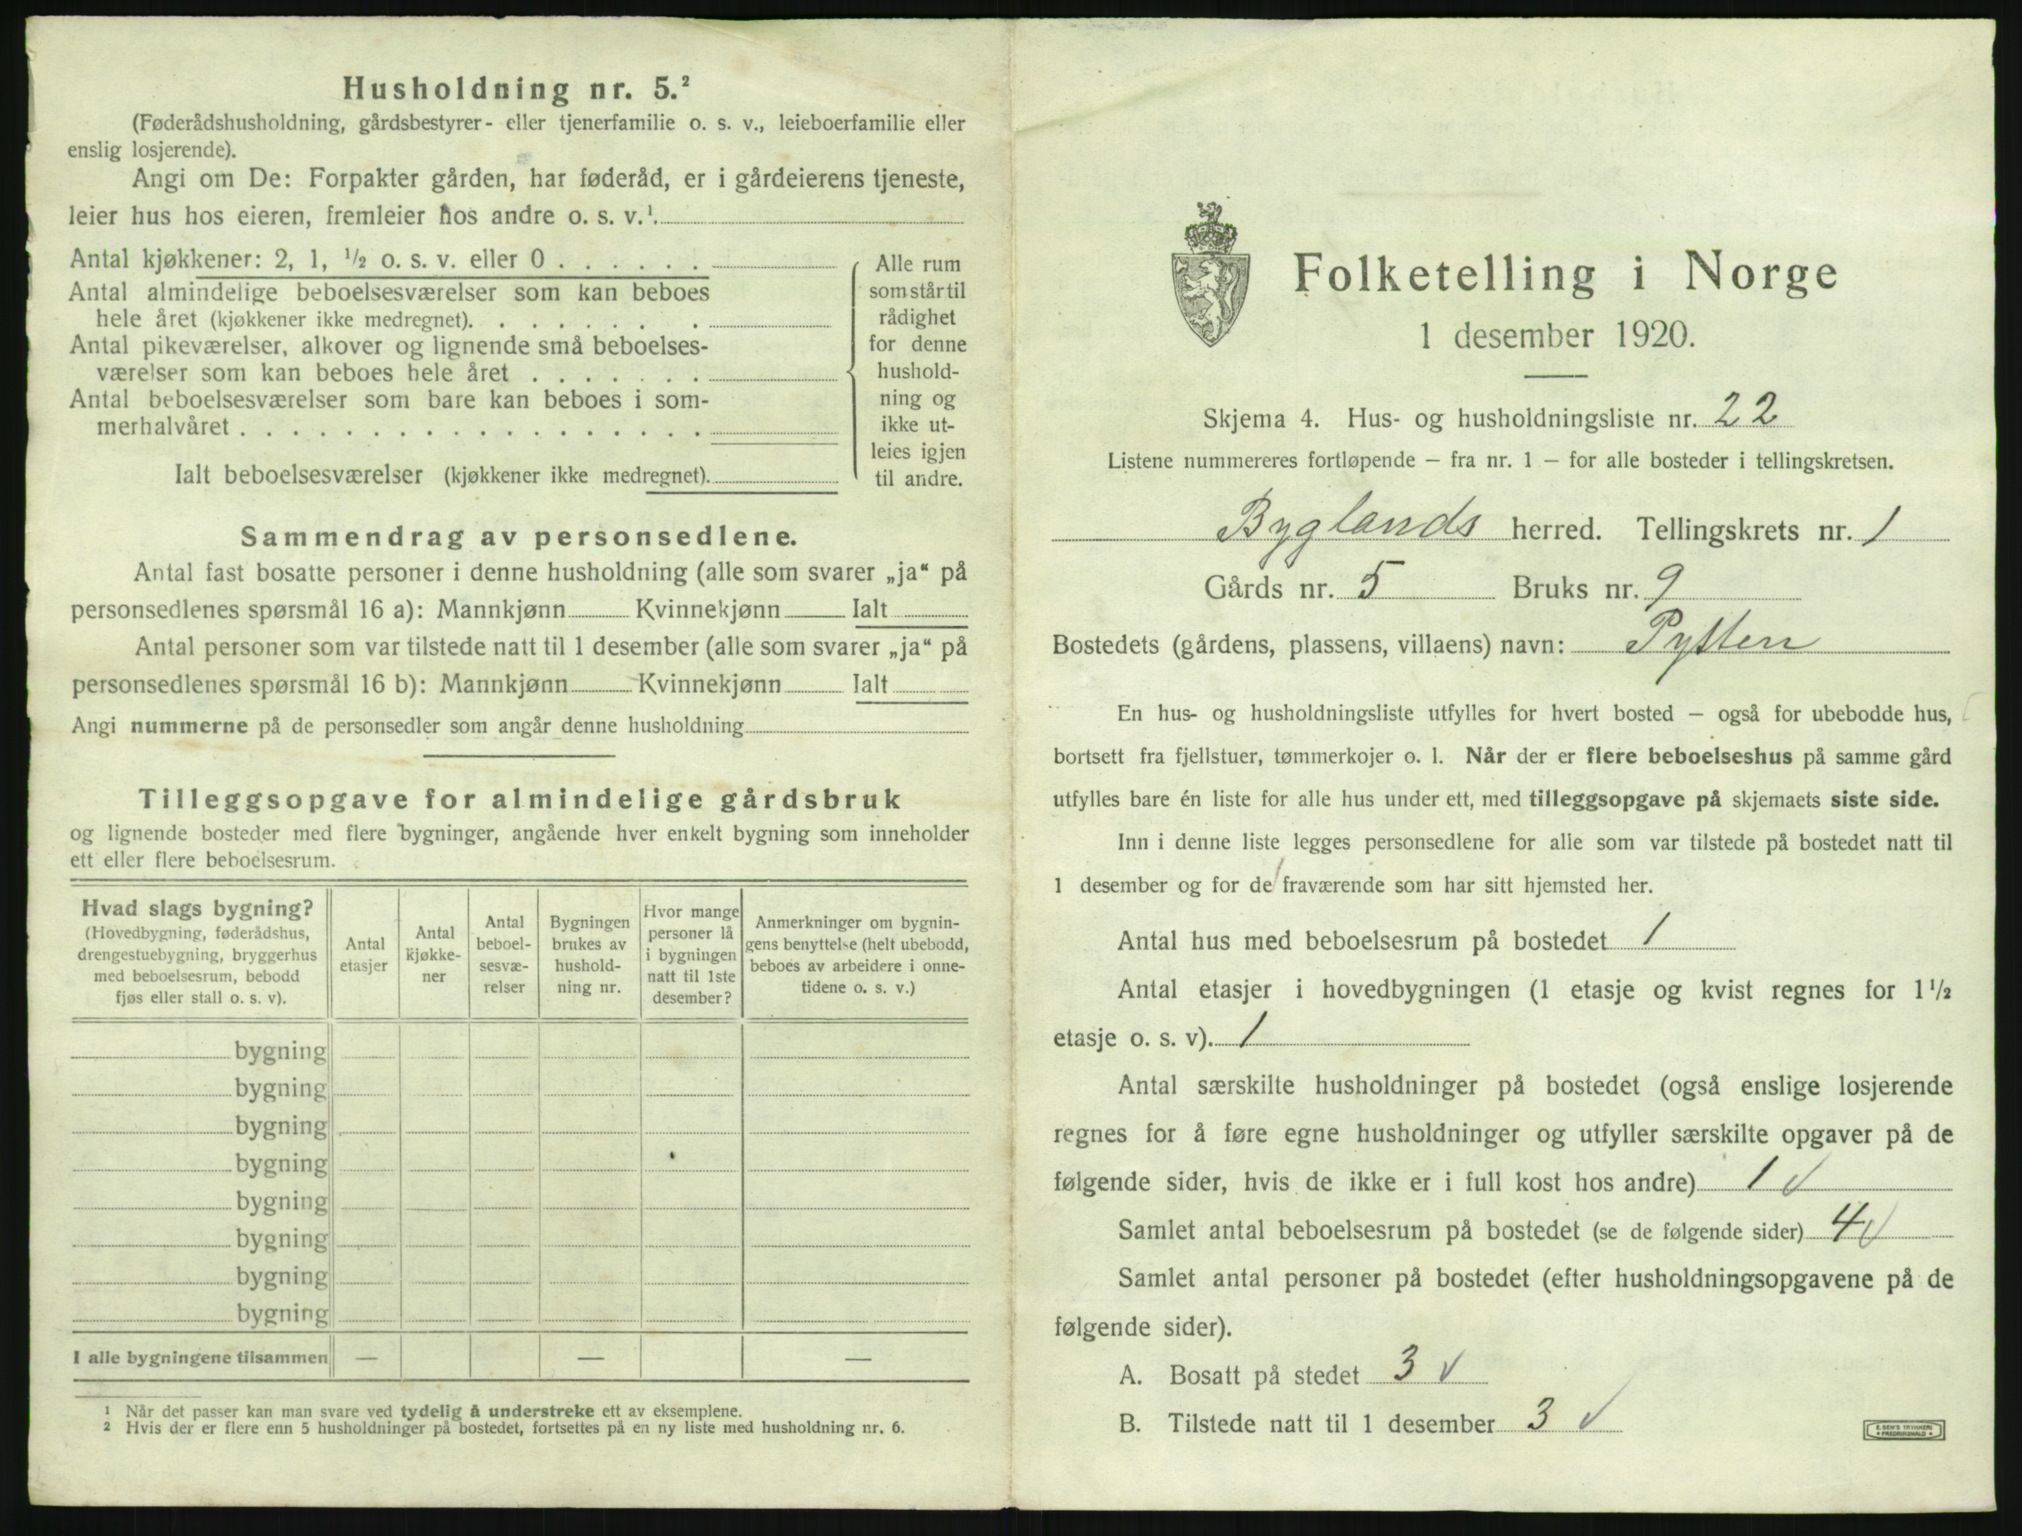 Husholdning nr. 5.²
(Føderådshusholdning, gårdsbestyrer- eller tjenerfamilie o. s. v., leieboerfamilie eller
enslig losjerende).
Angi om De: Forpakter gården, har føderåd, er i gårdeierens tjeneste,
leier hus hos eieren, fremleier hos andre o. s. v.¹
Antal kjøkkener: 2, 1, ½ o. s. v. eller 0
Antal almindelige beboelsesværelser som kan beboes
hele året (kjøkkener ikke medregnet).
Antal pikeværelser, alkover og lignende små beboelses-
værelser som kan beboes hele året
Antal beboelsesværelser som bare kan beboes i som-
merhalvåret
Ialt beboelsesværelser (kjøkkener ikke medregnet).
Alle rum
som står til
rådighet
for denne
hushold-
ning og
ikke ut-
leies igjen
til andre.
Sammendrag av personsedlene.
Antal fast bosatte personer i denne husholdning (alle som svarer „ja“ på
personsedlenes spørsmål 16 a): Mannkjønn Kvinnekjønn Ialt
Antal personer som var tilstede natt til 1 desember (alle som svarer „ja“ på
personsedlenes spørsmål 16 b): Mannkjønn Kvinnekjønn Ialt
Angi nummerne på de personsedler som angår denne husholdning
Tilleggsopgave for almindelige gårdsbruk
og lignende bosteder med flere bygninger, angående hver enkelt bygning som inneholder
ett eller flere beboelsesrum.
Hvad slags bygning?
(Hovedbygning, føderådshus,
drengestuebygning, bryggerhus
med beboelsesrum, bebodd
fjøs eller stall o. s. v).
Antal
etasjer
Antal
kjøkke-
ner
Antal
beboel-
sesvæ-
relser
Bygningen
brukes av
hushold-
ning nr.
Hvor mange
personer lå
i bygningen
natt til 1ste
desember?
Anmerkninger om bygnin-
gens benyttelse (helt ubebodd,
beboes av arbeidere i onne-
tidene o. s. v.)
bygning
bygning
bygning
bygning
bygning
bygning
bygning
bygning
I alle bygningene tilsammen — — —
¹ Når det passer kan man svare ved tydelig å understreke ett av eksemplene.
² Hvis der er flere enn 5 husholdninger på bostedet, fortsettes på en ny liste med husholdning nr. 6.
Folketelling i Norge
1 desember 1920.
Skjema 4. Hus- og husholdningsliste nr. 22
Listene nummereres fortløpende – fra nr. 1 – for alle bosteder i tellingskretsen.
Byglands herred. Tellingskrets nr. 1
Gårds nr. 5 Bruks nr. 9
Bostedets (gårdens, plassens, villaens) navn: Pytten
En hus- og husholdningsliste utfylles for hvert bosted – også for ubebodde hus,
bortsett fra fjellstuer, tømmerkojer o. l. Når der er flere beboelseshus på samme gård
utfylles bare én liste for alle hus under ett, med tilleggsopgave på skjemaets siste side.
Inn i denne liste legges personsedlene for alle som var tilstede på bostedet natt til
1 desember og for de fraværende som har sitt hjemsted her.
Antal hus med beboelsesrum på bostedet 1
Antal etasjer i hovedbygningen (1 etasje og kvist regnes for 1½
etasje o. s. v). 1
Antal særskilte husholdninger på bostedet (også enslige losjerende
regnes for å føre egne husholdninger og utfyller særskilte opgaver på de
følgende sider, hvis de ikke er i full kost hos andre) 1 √
Samlet antal beboelsesrum på bostedet (se de følgende sider) 4 √
Samlet antal personer på bostedet (efter husholdningsopgavene på de
følgende sider).
A. Bosatt på stedet 3 √
B. Tilstede natt til 1 desember 3 √